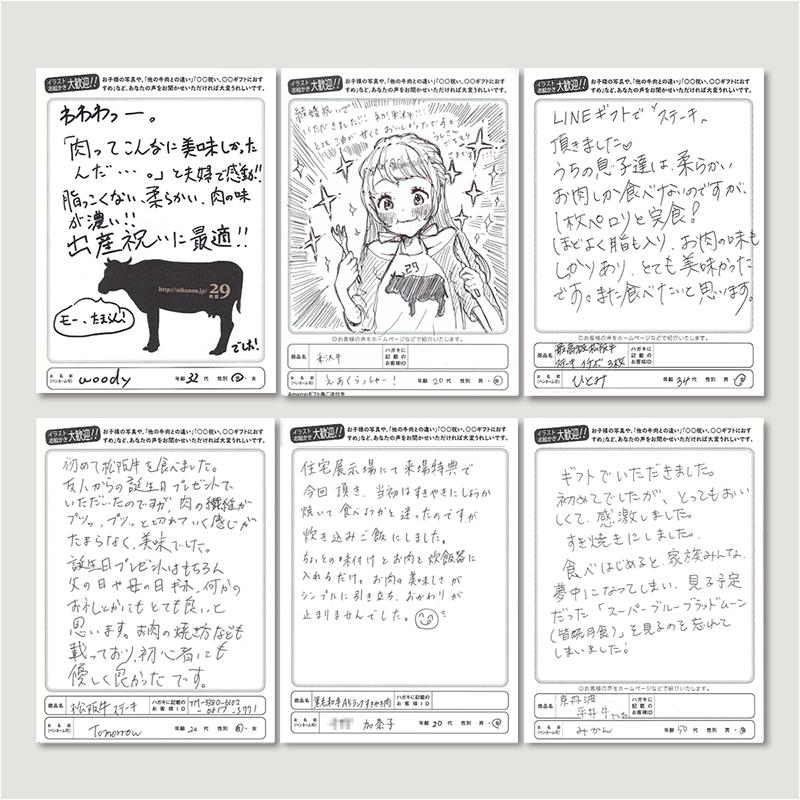 イラスト お絵かき 大歓迎!!
お子様の写真や、「他の牛肉との違い」「〇〇祝い、〇〇ギフトにおす
すめ」など、あなたの声をお聞かせいただければ大変うれしいです。
わわわっー。
「肉ってこんなに美味しかった
んだ…。」と夫婦で感動!!
脂っこくない、柔らかい、肉の味
が濃い!!
出産祝いに最適!!
http://nikuzou.jp/ 29
モー、たまらん!
でした!
お名前
(ペンネーム可)
woody
年齢 32代 性別 男・女
イラスト お絵かき 大歓迎!!
お子様の写真や、「他の牛肉との違い」「〇〇祝い、〇〇ギフトにおす
すめ」など、あなたの声をお聞かせいただければ大変うれしいです。
結婚祝いで
いただきました!!!
とても油が甘くておいしかったです。
29
◎お客様の声をホームページなどで紹介いたします。
商品名 米沢牛
ハガキに記載のお客様ID
お名前
(ペンネーム可)
えあくらっしゃー!
年齢 20代 性別 男・女
イラスト お絵かき 大歓迎!!
お子様の写真や、「他の牛肉との違い」「〇〇祝い、〇〇ギフトにおす
すめ」など、あなたの声をお聞かせいただければ大変うれしいです。
LINEギフトで「ステーキ」
頂きました♡
うちの息子達は、柔らかい
お肉しか食べないのですが、
1枚ペロリと完食!
ほどよく脂も入り、お肉の味も
しっかりあり、とても美味かった
です。また食べたいと思います。
◎お客様の声をホームページなどで紹介いたします。
商品名 最高級松阪牛
ステーキ イチボ 3枚
ハガキに記載のお客様ID
お名前
(ペンネーム可)
ひとみ
年齢 34代 性別 男・女
イラスト お絵かき 大歓迎!!
お子様の写真や、「他の牛肉との違い」「〇〇祝い、〇〇ギフトにおす
すめ」など、あなたの声をお聞かせいただければ大変うれしいです。
初めて松阪牛を食べました。
友人からの誕生日プレゼントで
いただいたのですが、肉の繊維が
プツッ、プツッと切れていく感じが
たまらなく、美味でした。
誕生日プレゼントはもちろん
父の日や母の日ギフト、何かの
お礼とかにもとても良いと
思います。お肉の焼き方なども
載っており、初心者にも
優しく良かったです。
商品名 松阪牛ステーキ
ハガキに記載のお客様ID
お名前
(ペンネーム可)
Tomorrow
年齢 20代 性別 男・女
イラスト お絵かき 大歓迎!!
お子様の写真や、「他の牛肉との違い」「〇〇祝い、〇〇ギフトにおす
すめ」など、あなたの声をお聞かせいただければ大変うれしいです。
住宅展示場にて来場特典で
今回頂き、当初はすきやきにしようか
焼いて食べようかと迷ったのですが
炊き込みご飯にしました。
ちょっとの味付けとお肉を炊飯器に
入れるだけ。お肉の美味しさが
シンプルに引き立ち、おかわりが
止まりませんでした。
商品名 黒毛和牛A5ランクすきやき肉
ハガキに記載のお客様ID
お名前
(ペンネーム可)
加奈子
年齢 20代 性別 男・女
イラスト お絵かき 大歓迎!!
お子様の写真や、「他の牛肉との違い」「〇〇祝い、〇〇ギフトにおす
すめ」など、あなたの声をお聞かせいただければ大変うれしいです。
ギフトでいただきました。
初めてでしたが、とってもおい
しくて、感激しました。
すき焼きにしました。
食べはじめると、家族みんな、
夢中になってしまい、見る予定
だった「スーパーブルーブラッドムーン
(皆既月食)」を見るのを忘れて
しまいました!
◎お客様の声をホームページなどで紹介いたします。
商品名 京丹波
平井牛でした
ハガキに記載のお客様ID
お名前
(ペンネーム可)
みかん
年齢 50代 性別 男・女